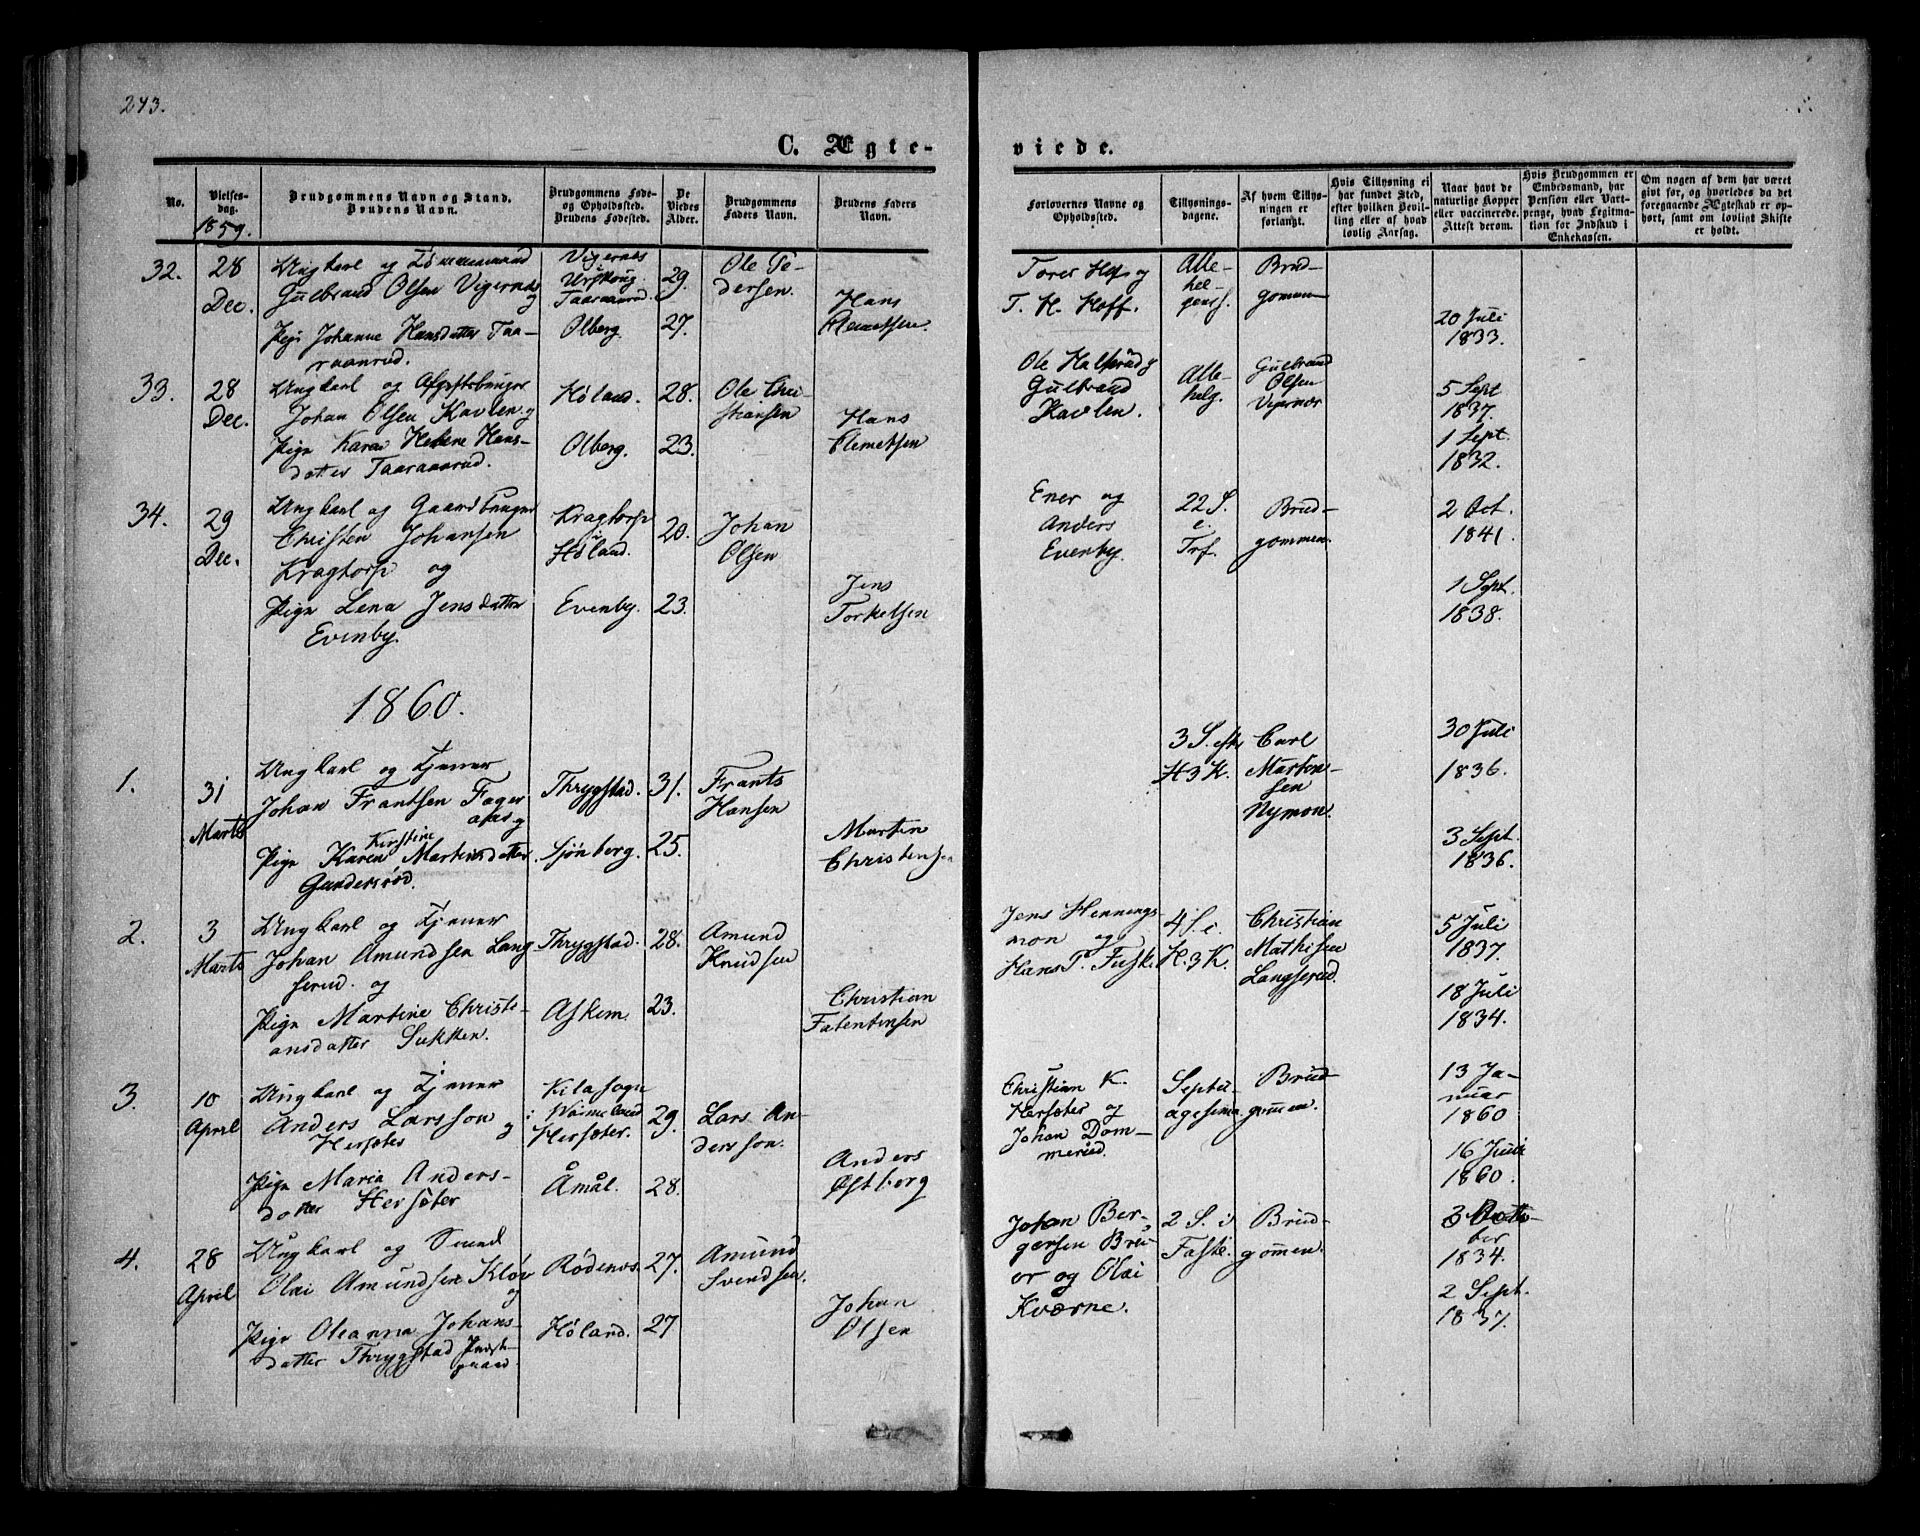 243.
C. Ægte-
viede.
No.
Vielses-
dag.
1859.
Brudgommens Navn og Stand.
Brudens Navn.
Brudgommens Føde-
og Opholdsted.
Brudens Fødested.
De
Viedes
Alder.
Brudgommens
Faders Navn.
Brudens Faders
Navn.
Forlovernes Navne og
Opholdssted.
Tillysnings-
dagene.
Af hvem Tillys-
ningen er
forlangt.
Hvis Tillysning ei
har fundet Sted,
efter hvilken Bevil-
ling eller af hvad
lovlig Aarsag.
Naar havt de
naturlige Kopper
eller vaccinerede.
Attest derom.
Hvis Brudgommen er
Embedsmand, har
Pension eller Vart-
penge, hvad Legitima-
tion for Indskud i
Enkekassen.
Om nogen af dem har været
gift før, og hvorledes da det
foregaaende Ægteskab er op-
hørt, samt om lovligt Skifte
er holdt.
32.
28
Dec.
Ungkarl og Tømmermand
Gulbrand Olsen Vigernæs
og
Pige Johanne Hansdatter Taa-
raanrud.
Vigernæs
Urskoug
Taaraanrud.
Olberg.
29.
27.
Ole Pe-
dersen.
Hans
Clemetsen.
Torer Hof og
T. H. Hoff.
Alle-
hel-
gens.
Brud-
gomen
20 Juli
1833.
33.
28
Dec.
Ungkarl og
Johan Olsen Kavlen og
Pige Karen Helene Hans-
datter Taaraanrud.
Høland.
Olberg.
28.
23.
Ole Chri-
stiansen
Hans
Clemetsen
Ole Halsrud og
Gulbrand
Kavlen.
Alle-
helg.
Gulbrand
Olsen
Vigernæs
5 Sept
1837.
1 Sept.
1832.
34.
29
Dec.
Ungkarl og Gaardbruger
Christen Johansen
Kragtorp og
Pige Lena Jensdatter
Evenby.
Kragtorp
i
Høland.
Evenby.
20.
23.
Johan
Olsen
Jens
Torkelsen
Ener og
Anders
Evenby.
22 S.
e.
Trf.
Brud-
gommen.
2 Oct.
1841.
1 Sept.
1838.
1860.
1.
31
Marts
Ungkarl og Tjener
Johan Frantsen Fager
aas og
Kirstine
Pige Karen Martinsdatter
Gundersrød.
Thrygstad.
Sjønberg.
31.
25.
Frants
Hansen
Marten
Christensen
3 S. eft.
H 3 K.
Carl
Marten-
sen
Nymon.
30 Juli
1836.
3 Sept.
1836.
2.
3
Marts
Ungkarl og Tjener
Johan Amundsen Lang-
serud. og
Pige Martine Christi-
ansdatter Sukken.
Thrygstad.
Askem.
28.
23.
Amund
Knudsen
Christian
Fatentinsen
Jens Hennings-
mon og
Hans P. Fusk.
4 S. e.
H. 3 K.
Christian
Mathisen
Langserud.
5 Juli
1837.
18 Juli
1834.
3.
10
April
Ungkarl og Tjener
Anders Larsson og
Hersæter
Pige Maria Anders-
datter Hersæter
Kila sogn
i Wärmeland
Hersæter.
Åmål.
29.
28.
Lars An-
dersson.
Anders
Østberg
Christian K.
Hersæter og
Johan Dom-
merud.
Septu-
agesima
Brud-
gomen.
13 Ja-
nuar
1860
16 Juni
1860.
4.
28
April
Ungkarl og Smed
Olai Amundsen Kløv
og
Pige Oleanna Johans-
datter Thrygstad Præste-
gaard
Rødenæs.
Høland.
27.
27
Amund
Svendsen
Johan
Olsen
Johan Ber-
gersen Bru-
er og Olai
Kværne.
2 S. i
Faste.
Brud-
gommen.
3 Octo-
ber
1834.
2 Sept.
1837.